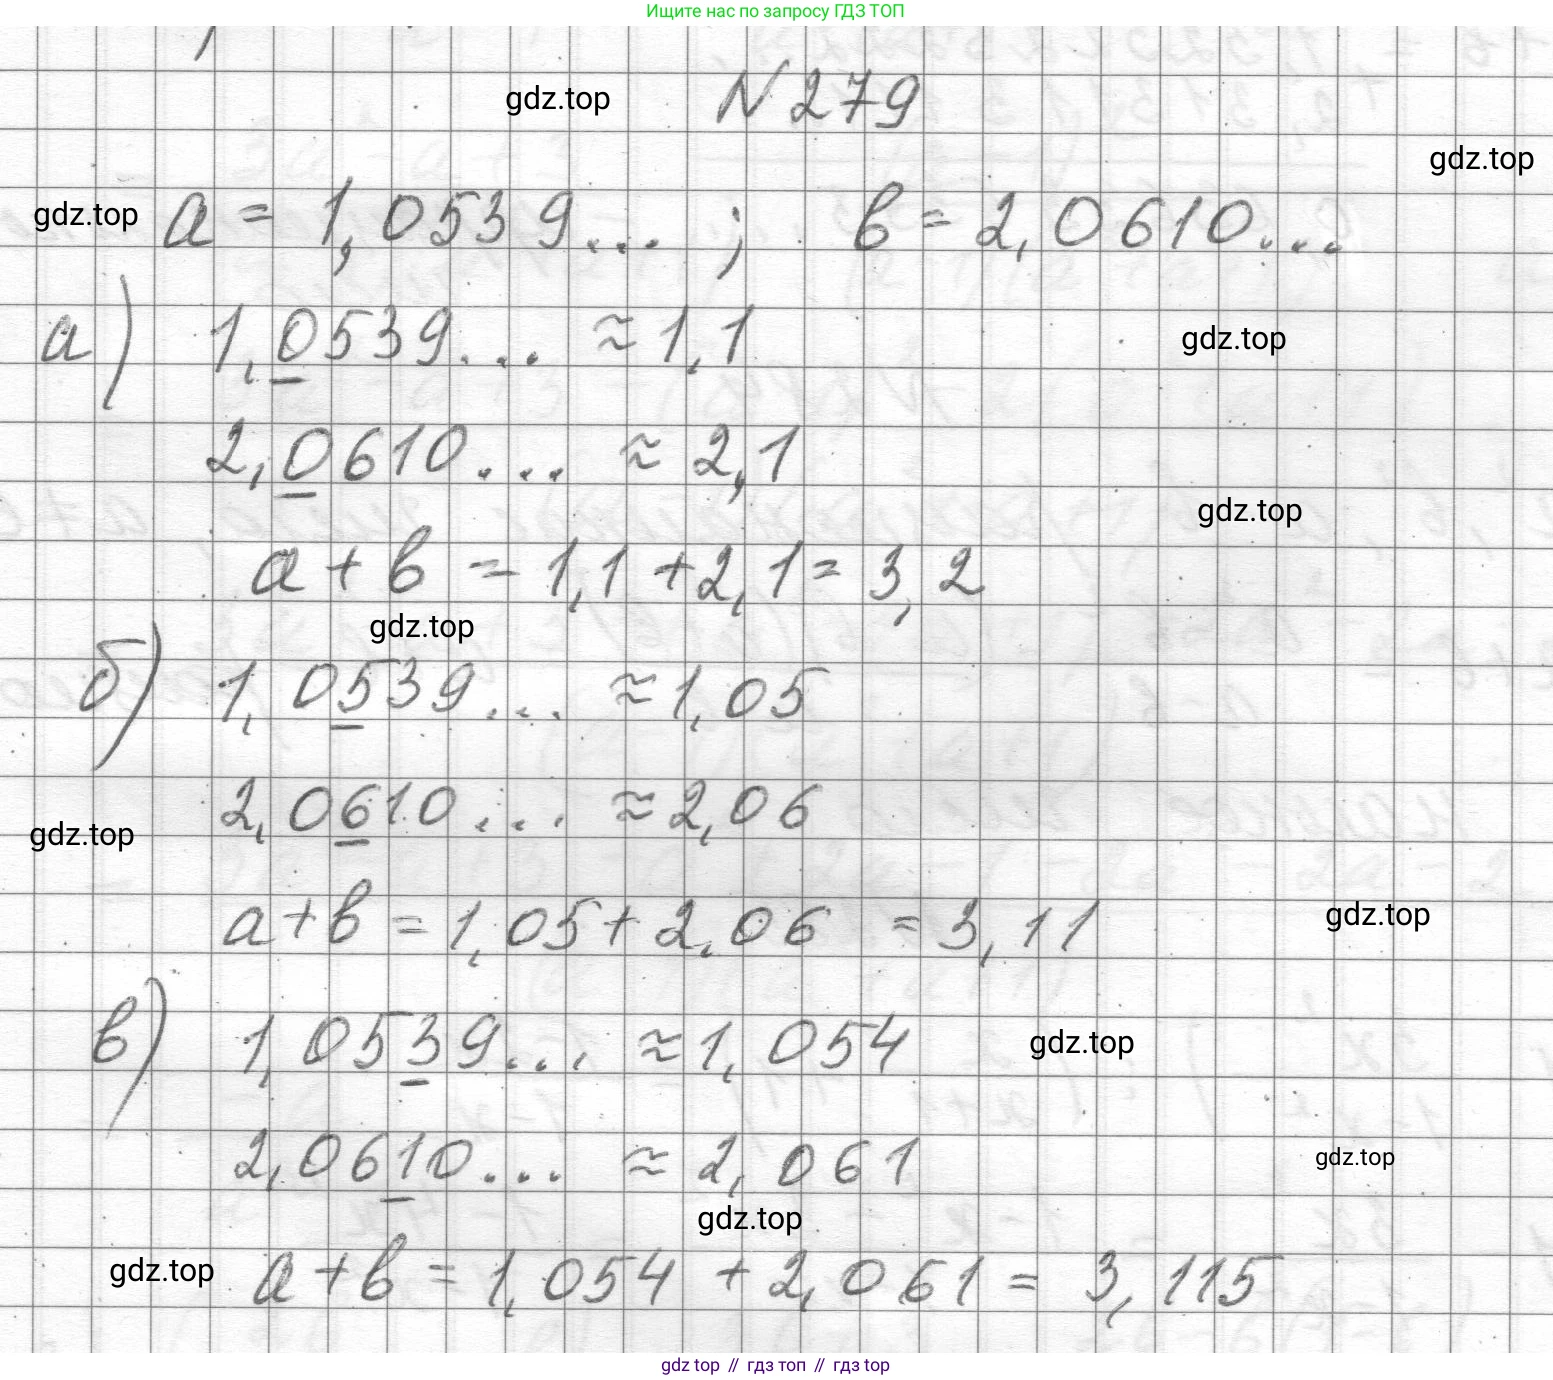 Ищите нас по запросу ГДЗ ТОП
gdz.top
N 279
gdz.top
gdz.top
a = 1,0539... ; в = 2,0610...
а) 1,0539... ≈ 1,1
gdz.top
2,0610... ≈ 2,1
gdz.top
a + в = 1,1 + 2,1 = 3,2
gdz.top
б) 1,0539... ≈ 1,05
2,0610... ≈ 2,06
gdz.top
a + в = 1,05 + 2,06 = 3,11
gdz.top
в) 1,0539... ≈ 1,054
gdz.top
2,0610... ≈ 2,061
gdz.top
gdz.top
gdz.top
a + в = 1,054 + 2,061 = 3,115
gdz top // гдз топ // гдз top